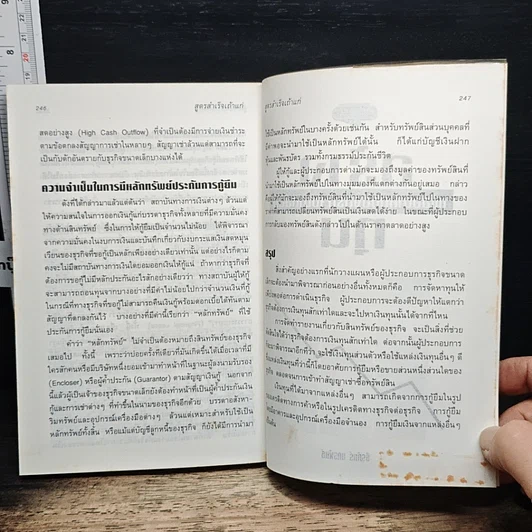 246
สูตรสำเร็จเถ้าแก่
สดอย่างสูง (High Cash Outflow) ที่จำเป็นต้องมีการจ่ายเงินชำระ
ตามข้อตกลงสัญญาการเช่าในหลายๆ สัญญาเช่าล้วนแต่สามารถที่จะ
เป็นกับดักอันตรายกับธุรกิจขนาดเล็กบางแห่งได้
ความจำเป็นในการมีหลักทรัพย์ประกันการกู้ยืม
ดังที่ได้กล่าวมาแล้วแต่ต้นว่า สถาบันทางการเงินต่างๆ ล้วนแต่
ให้ความสนใจในการออกเงินกู้แก่บรรดาธุรกิจทั้งหลายที่มีความมั่นคง
ทางด้านสินทรัพย์ ซึ่งในการให้กู้ยืมเป็นจำนวนไม่น้อย ได้พิจารณา
จากความมั่นคงในงบการเงินและบันทึกเกี่ยวกับงบกระแสเงินสดหมุน
เวียนของธุรกิจที่ขอกู้เป็นหลักเพียงอย่างเดียวเท่านั้น แต่อย่างไรก็ตาม
คงจะไม่มีสถาบันทางการเงินใดยอมออกเงินให้กู้แน่ ถ้าหากว่าธุรกิจนั้น
ไม่มีสิ่งหนึ่งสิ่งใดที่ใช้เป็นหลักประกันอะไรสักอย่างเดียวว่า ทางสถาบันผู้ให้กู้
จะสามารถถอนทุนจากบางอย่างที่มีค่าไม่น้อยไปกว่าจำนวนเงินที่กู้
ในกรณีที่ทางธุรกิจที่ขอกู้ไม่สามารถคืนเงินกู้พร้อมดอกเบี้ยได้ทันตาม
สัญญาที่ตกลงกันไว้ บางอย่างที่มีค่านี้เรียกว่า “หลักทรัพย์” ที่ใช้
ประกันการกู้ยืมนั่นเอง
คำว่า “หลักทรัพย์” ไม่จำเป็นต้องหมายถึงสินทรัพย์ของธุรกิจ
เสมอไป ทั้งนี้ เพราะว่าบ่อยครั้งทีเดียวที่มันเกิดขึ้นได้เมื่อเวลาที่มี
ใครสักคนหรือมีบริษัทหนึ่งยอมเข้ามาทำหน้าที่ในฐานะผู้ลงนามรับรอง
(Encloser) หรือผู้ค้ำประกัน (Guarantor) ตามสัญญาเงินกู้ นอกจาก
นี้แล้วผู้เป็นเจ้าของธุรกิจขนาดเล็กยังต้องทำหน้าที่เป็นผู้ค้ำประกันเงิน
กู้และการเช่าต่างๆ ที่ทำขึ้นในนามของธุรกิจอีกด้วย บรรดาอสังหา-
ริมทรัพย์และอุปกรณ์เครื่องมือต่างๆ ล้วนแต่เหมาะสำหรับใช้เป็น
หลักทรัพย์ทั้งสิ้น หรือแม้แต่บัญชีลูกหนี้ของธุรกิจ ก็ยังได้มีการนำมา
สูตรสำเร็จเถ้าแก่
247
ใช้เป็นหลักทรัพย์ในบางครั้งด้วยเช่นกัน สำหรับทรัพย์สินส่วนบุคคลที่
อาจจะนำมาใช้เป็นหลักทรัพย์ได้นั้น ก็ได้แก่บัญชีเงินฝาก
และพันธบัตร รวมทั้งกรมธรรม์ประกันชีวิต
ผู้ให้กู้และผู้ประกอบการต่างมักจะมองถึงมูลค่าของทรัพย์สินที่
ใช้เป็นหลักทรัพย์ไปในทางมุมมองที่แตกต่างกันอยู่เสมอ กล่าว
ผู้ให้กู้มักจะมองสินทรัพย์ที่นำมาใช้เป็นหลักทรัพย์ไปในทางของ
ที่สามารถเปลี่ยนทรัพย์สินเป็นเงินสดได้ง่าย ในขณะที่ผู้ประกอบ
มองทรัพย์สินดังกล่าวไปในด้านราคาตลาดอย่างสูง
สรุป
สิ่งสำคัญอย่างแรกที่นักวางแผนหรือผู้ประกอบการธุรกิจขนาด
จะต้องนำมาพิจารณาก่อนอย่างอื่นทั้งหมดก็คือ การจัดหาทุนให้
เพียงพอต่อการดำเนินธุรกิจ ผู้ประกอบการจะต้องตีปัญหาให้แตกว่า
ธุรกิจต้องการเงินทุนสักเท่าใดและจะไปหาเงินทุนนั้นได้จากที่ไหน
การจัดทำรายงานเกี่ยวกับสินทรัพย์ของธุรกิจ จะเป็นสิ่งที่ช่วย
ธุรกิจต้องการเงินทุนสักเท่าไร ต่อจากนั้นผู้ประกอบการ
พิจารณาอีกทีว่า จะใช้เงินทุนส่วนตัวหรือใช้แหล่งเงินทุนอื่นๆ ดี
แหล่งเงินทุนอื่นๆ ที่ว่านี้ก็โดยอาศัยการกู้ยืมหรือขายส่วนหนึ่งส่วนใดของ
ตลอดจนการเข้าทำสัญญาเช่าซื้อทรัพย์สิน
เงินทุนที่ได้มาจากแหล่งอื่นๆ สามารถเกิดจากการกู้ยืมในรูป
ทางการค้าหรือในรูปเครดิตทางธุรกิจต่อธุรกิจ การกู้ยืม
อาคารและอุปกรณ์เครื่องมือจำนอง การกู้ยืมเงินจากแหล่งอื่นๆ